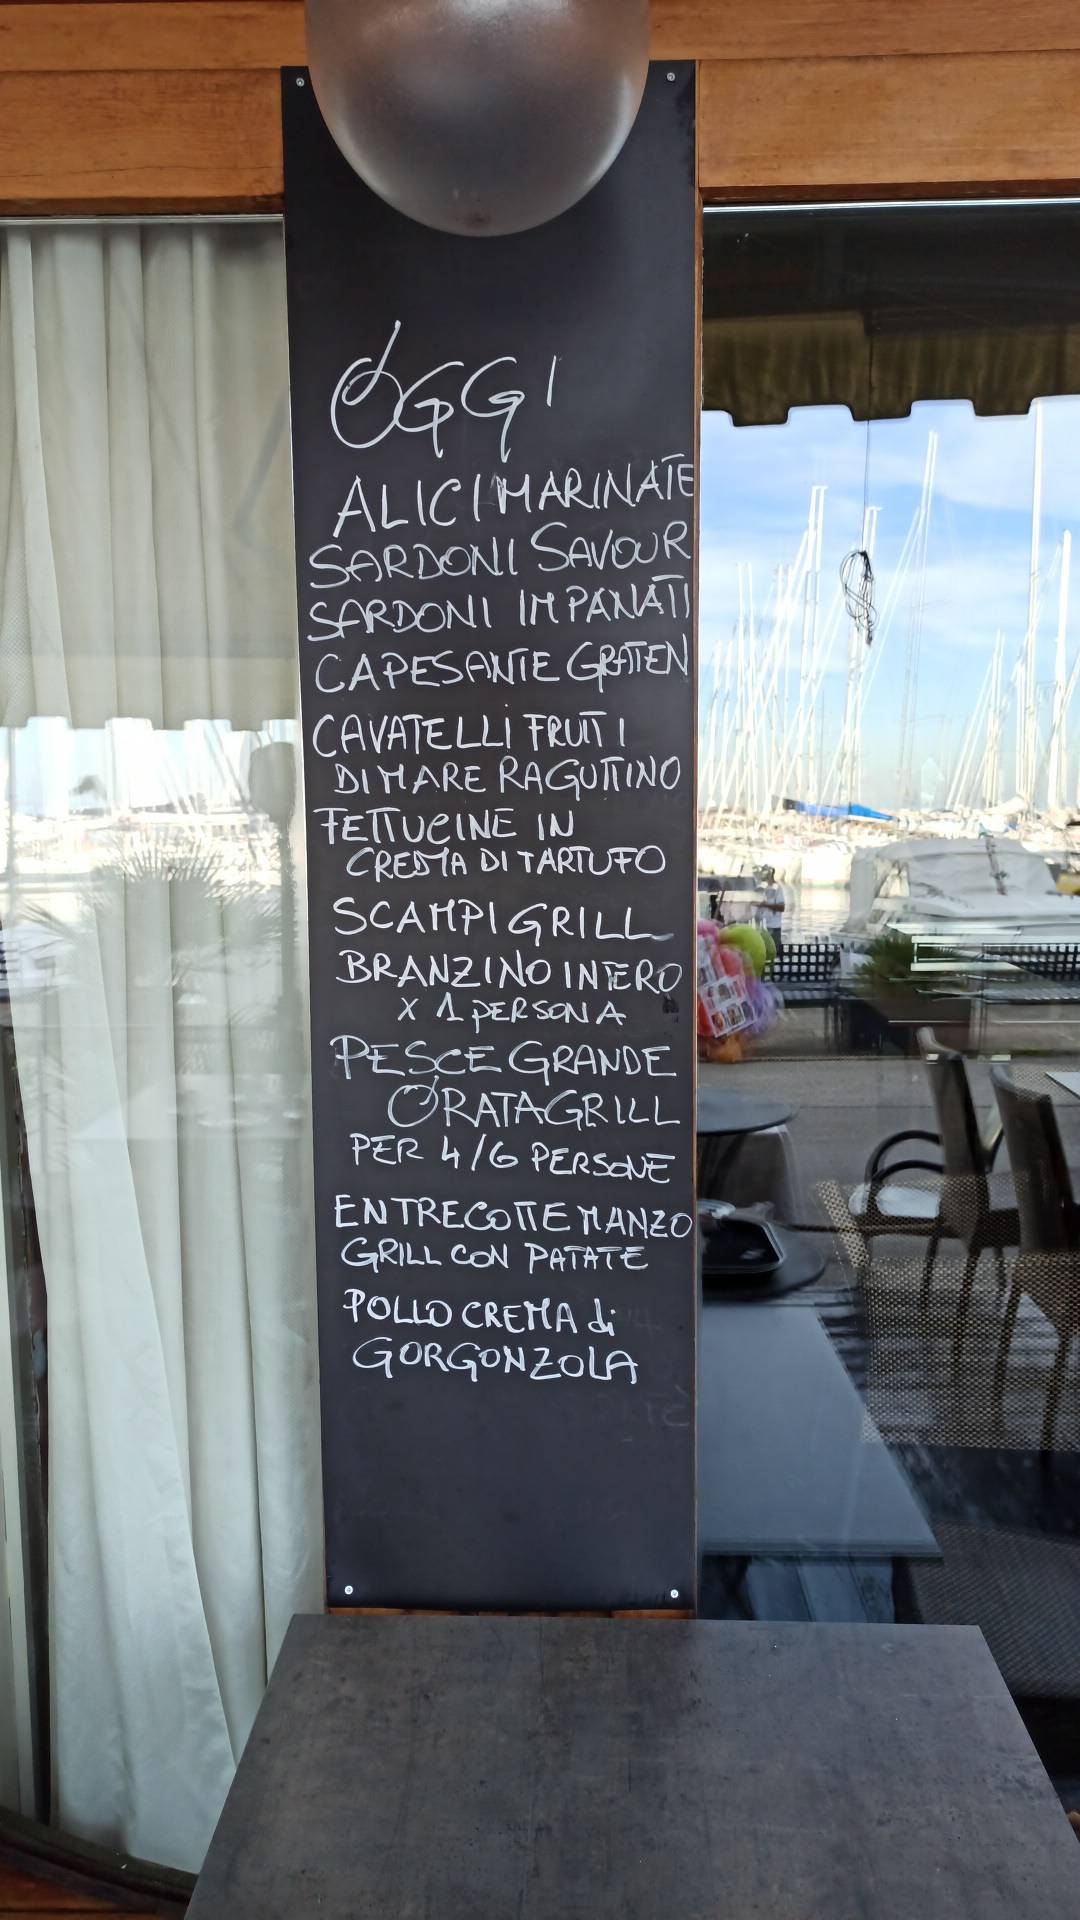 OGGI
ALICI MARINATE
SARDONI SAVOUR
SARDONI IMPANATI
CAPESANTE GRATTEN
CAVATELLI FRUTTI
DI MARE RAGUTTINO
FETTUCINE IN
CREMA DI TARTUFO
SCAMPI GRILL
BRANZINO INTERO
X 1 PERSONA
PESCE GRANDE
ORATA GRILL
PER 4/6 PERSONE
ENTRECOTTE MANZO
GRILL CON PATATE
POLLO CREMA di
GORGONZOLA